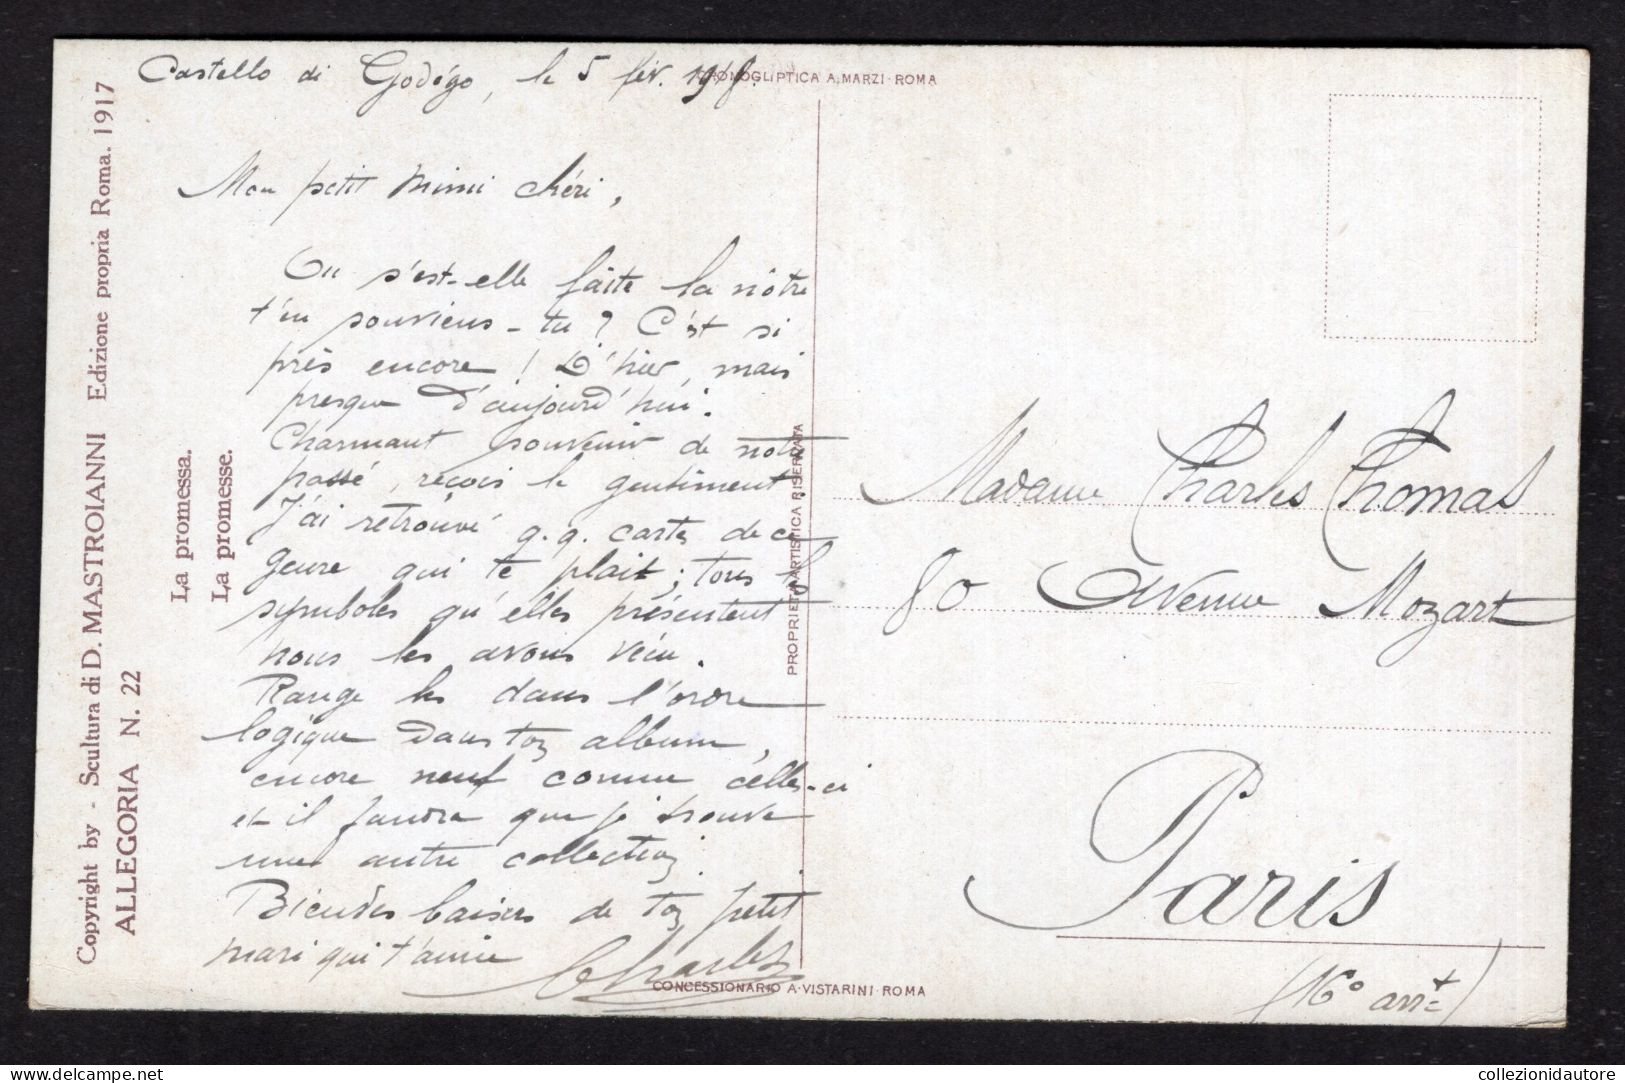 Castello di Godégo, le 5 fév. 1918.
CROMOGLIPTICA A. MARZI · ROMA
Mon petit Mimi chéri,
Où s'est-elle faite la nôtre
t'en souviens-tu ? C'est si
près encore ! D'hier, mais
presque d'aujourd'hui.
Charmant souvenir de notre
passé, reçois le gentiment.
J'ai retrouvé q.q. cartes de ce
genre qui te plait ; tous les
symboles qu'elles présentent
nous les avons vécu.
Range les dans l'ordre
logique dans ton album,
encore neuf comme celles-ci
et il faudra que je trouve
une autre collection.
Bien des baisers de ton petit
mari qui t'aime
Charles
CONCESSIONARIO A. VISTARINI · ROMA
PROPRIETÀ ARTISTICA RISERVATA
Copyright by - Scultura di D. MASTROIANNI Edizione propria Roma. 1917
ALLEGORIA N. 22
La promessa.
La promesse.
Madame Charles Thomas
80 Avenue Mozart
Paris
(16° arrt)
© collezionidautore